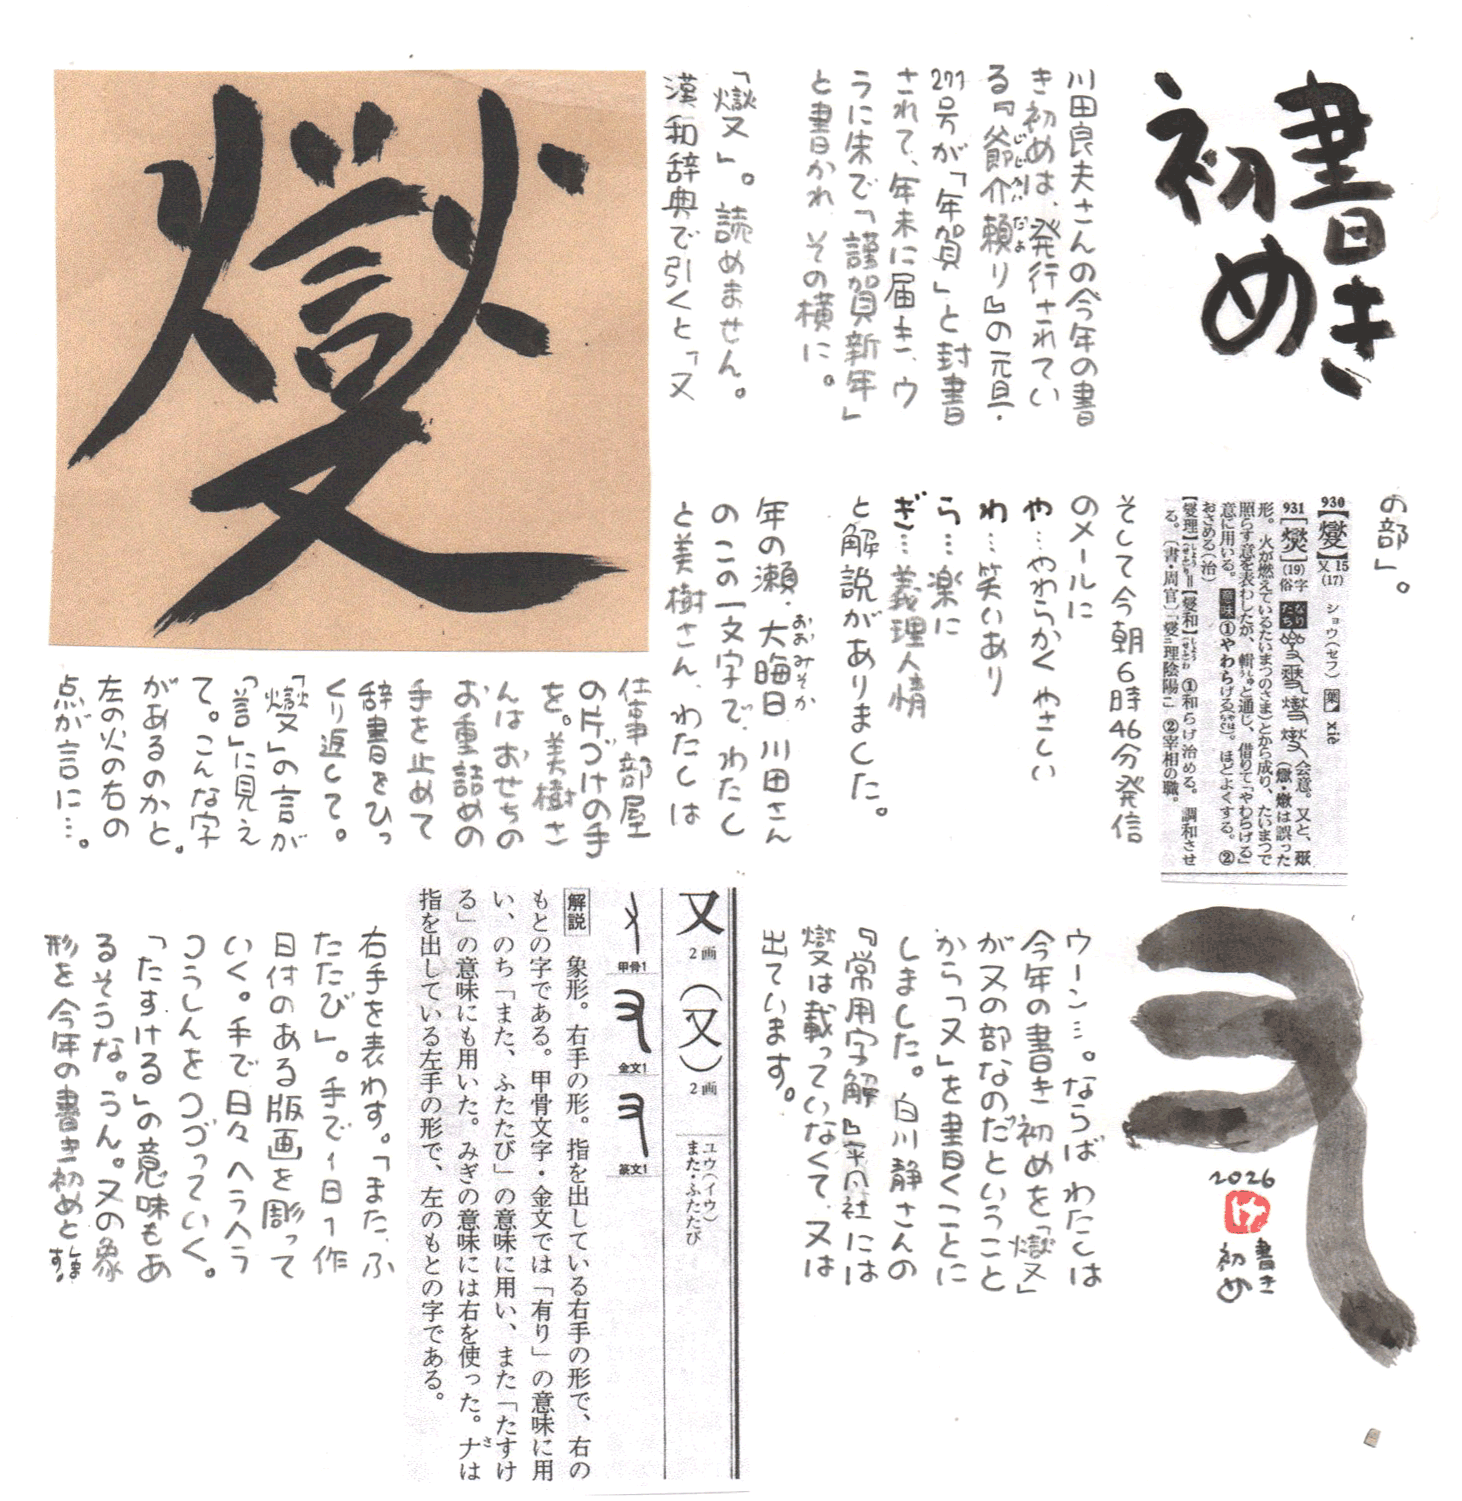 書き
初め
川田良夫さんの今年の書
き初めは、発行されてい
る『爺介頼り』の元旦・
277号が「年賀」と封書
されて、年末に届き、ウ
うに朱で「謹賀新年」
と書かれ、その横に。
「燮」。読めません。
漢和辞典で引くと「又
燮
の部」。
930【燮】又15(17) ショウ(セフ) 葉 xiè
931【燮】(19)俗字 なりたち 会意。又と、
形。火が燃えているたいまつのさま)とから成り、たいまつで
照らす意を表わしたが、輯と通じ、借りて「やわらげる」
意に用いる。 意味 ①やわらげる。ほどよくする。②
おさめる(治)
【燮理】=【燮和】 ①和らげ治める。調和させ
る。〔書・周官〕「燮理陰陽」②宰相の職。
そして今朝6時46分発信
のメールに
や…やわらかく やさしい
わ…笑いあり
ら…楽に
ぎ…義理人情
と解説がありました。
年の瀬・大晦日 川田さん
おおみそか
のこの一文字で、わたし
と美樹さん、わたしは
仕事部屋
の片づけの手
を。美樹さ
んはおせちの
お重詰めの
手を止めて
辞書をひっ
くり返して。
「燮」の言が
「言」に見え
て。こんな字
があるのかと。
左の火の右の
点が言に…。
2026
け
書き
初め
ウーン…。ならば わたしは
今年の書き初めを「燮」
が又の部なのだということ
から「又」を書くことに
しました。白川静さんの
『常用字解』平凡社には
燮は載っていなくて、又は
出ています。
又 2画 (又) 2画
ユウ(イウ)
また・ふたたび
甲骨1
金文1
篆文1
解説 象形。右手の形。指を出している右手の形で、右の
もとの字である。甲骨文字・金文では「有り」の意味に用
い、のち「また、ふたたび」の意味に用い、また「たすけ
る」の意味にも用いた。みぎの意味には右を使った。ナは
指を出している左手の形で、左のもとの字である。
右手を表わす。「また、ふ
たたび」。手で1日1作
日付のある版画を彫って
いく。手で日々ヘラヘラ
つうしんをつづっていく。
「たすける」の意味もあ
るそうな。うん。又の象
形を今年の書き初めと
します。